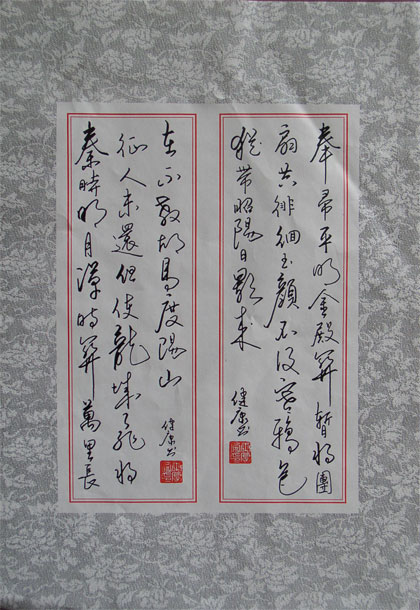 奉帚平明金殿開暫將團
扇共徘徊玉顏不及寒鴉色
猶帶昭陽日影來
健康书
秦時明月漢時關萬里長
征人未還但使龍城飛將
在不教胡馬度陽山
健康书